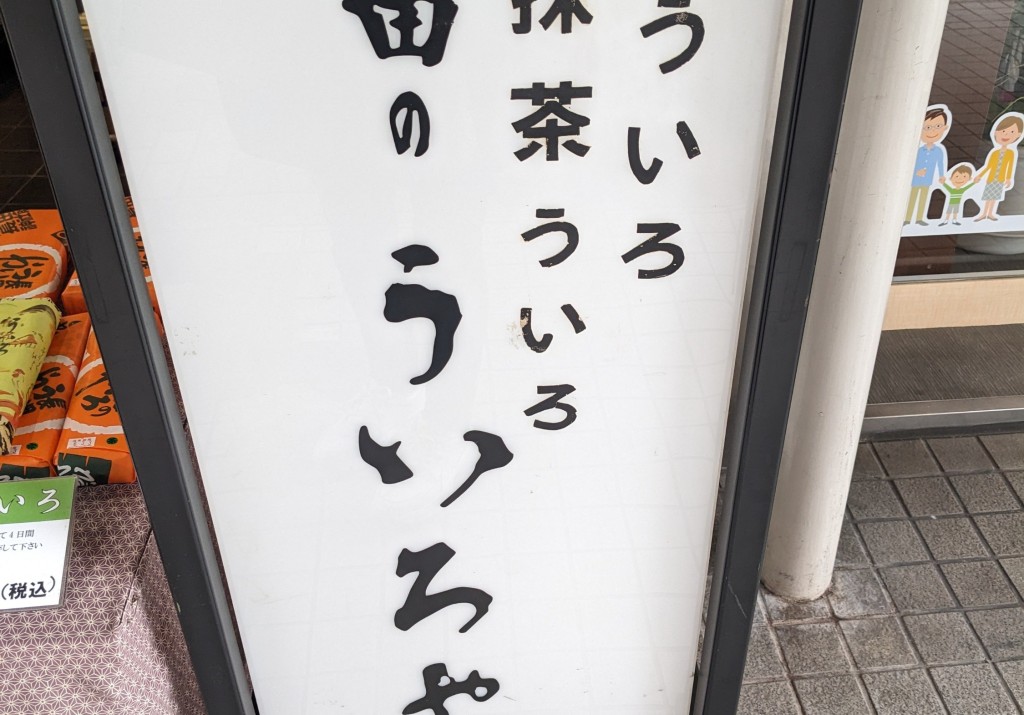 ういろ
抹茶ういろ
のういろや
いろ
て4日間
して下さい
(税込)